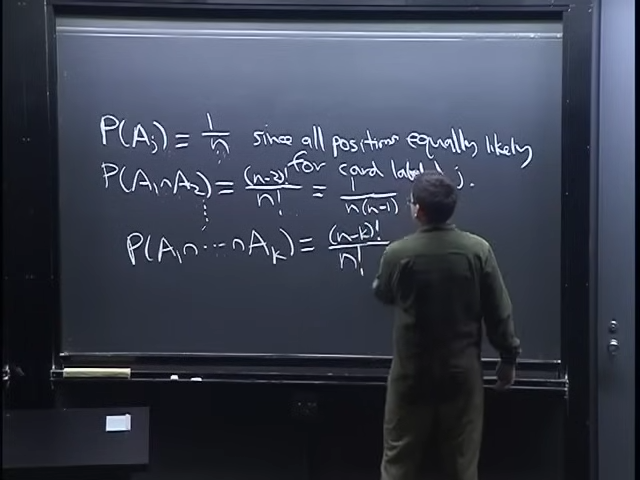 P(Aj) = 1/n since all positions equally likely
for card labeled j.
P(A₁∩A₂) = (n-2)!/n! = 1/n(n-1)
P(A₁∩⋯∩Aₖ) = (n-k)!/n!